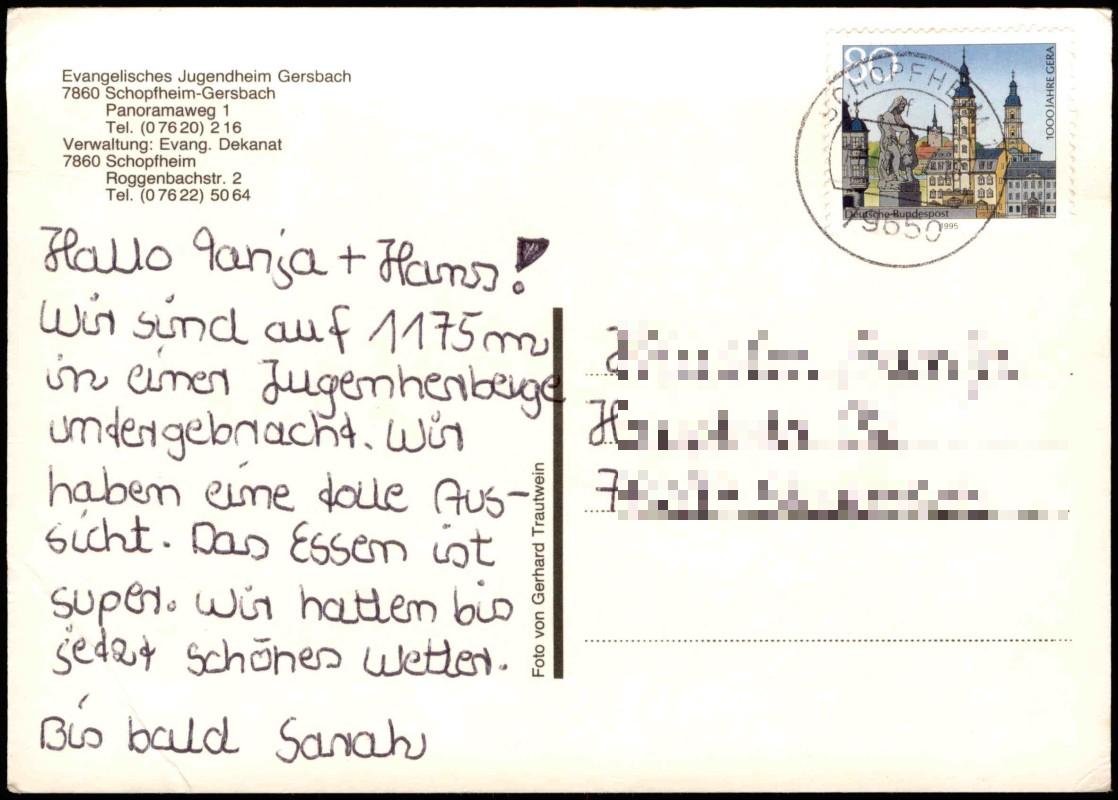 Evangelisches Jugendheim Gersbach
7860 Schopfheim-Gersbach
Panoramaweg 1
Tel. (0 76 20) 2 16
Verwaltung: Evang. Dekanat
7860 Schopfheim
Roggenbachstr. 2
Tel. (0 76 22) 50 64
80
1000 JAHRE GERA
Deutsche Bundespost
1995
SCHOPFHEIM
79650
Hallo Tanja + Hans!
Wir sind auf 1175m
in einer Jugenherberge
untergebracht. Wir
haben eine tolle Aus-
sicht. Das Essen ist
super. Wir hatten bis
jetzt schönes Wetter.
Bis bald Sarah
Foto von Gerhard Trautwein